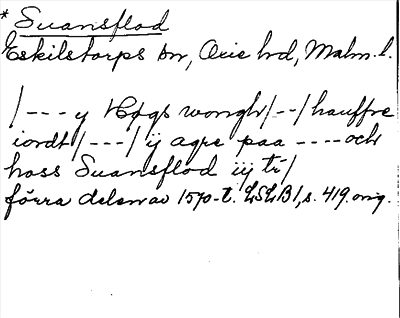 * Suansflod
Eskilstorps sn, Oxie hd, Malm. l.
/--- y Høgs wongh/--/hauffve
iordt/---/ij agre paa ----och
hoss Suansflod iij tr/
förra delen av 1570-t. LSLB1, s. 419. orig.